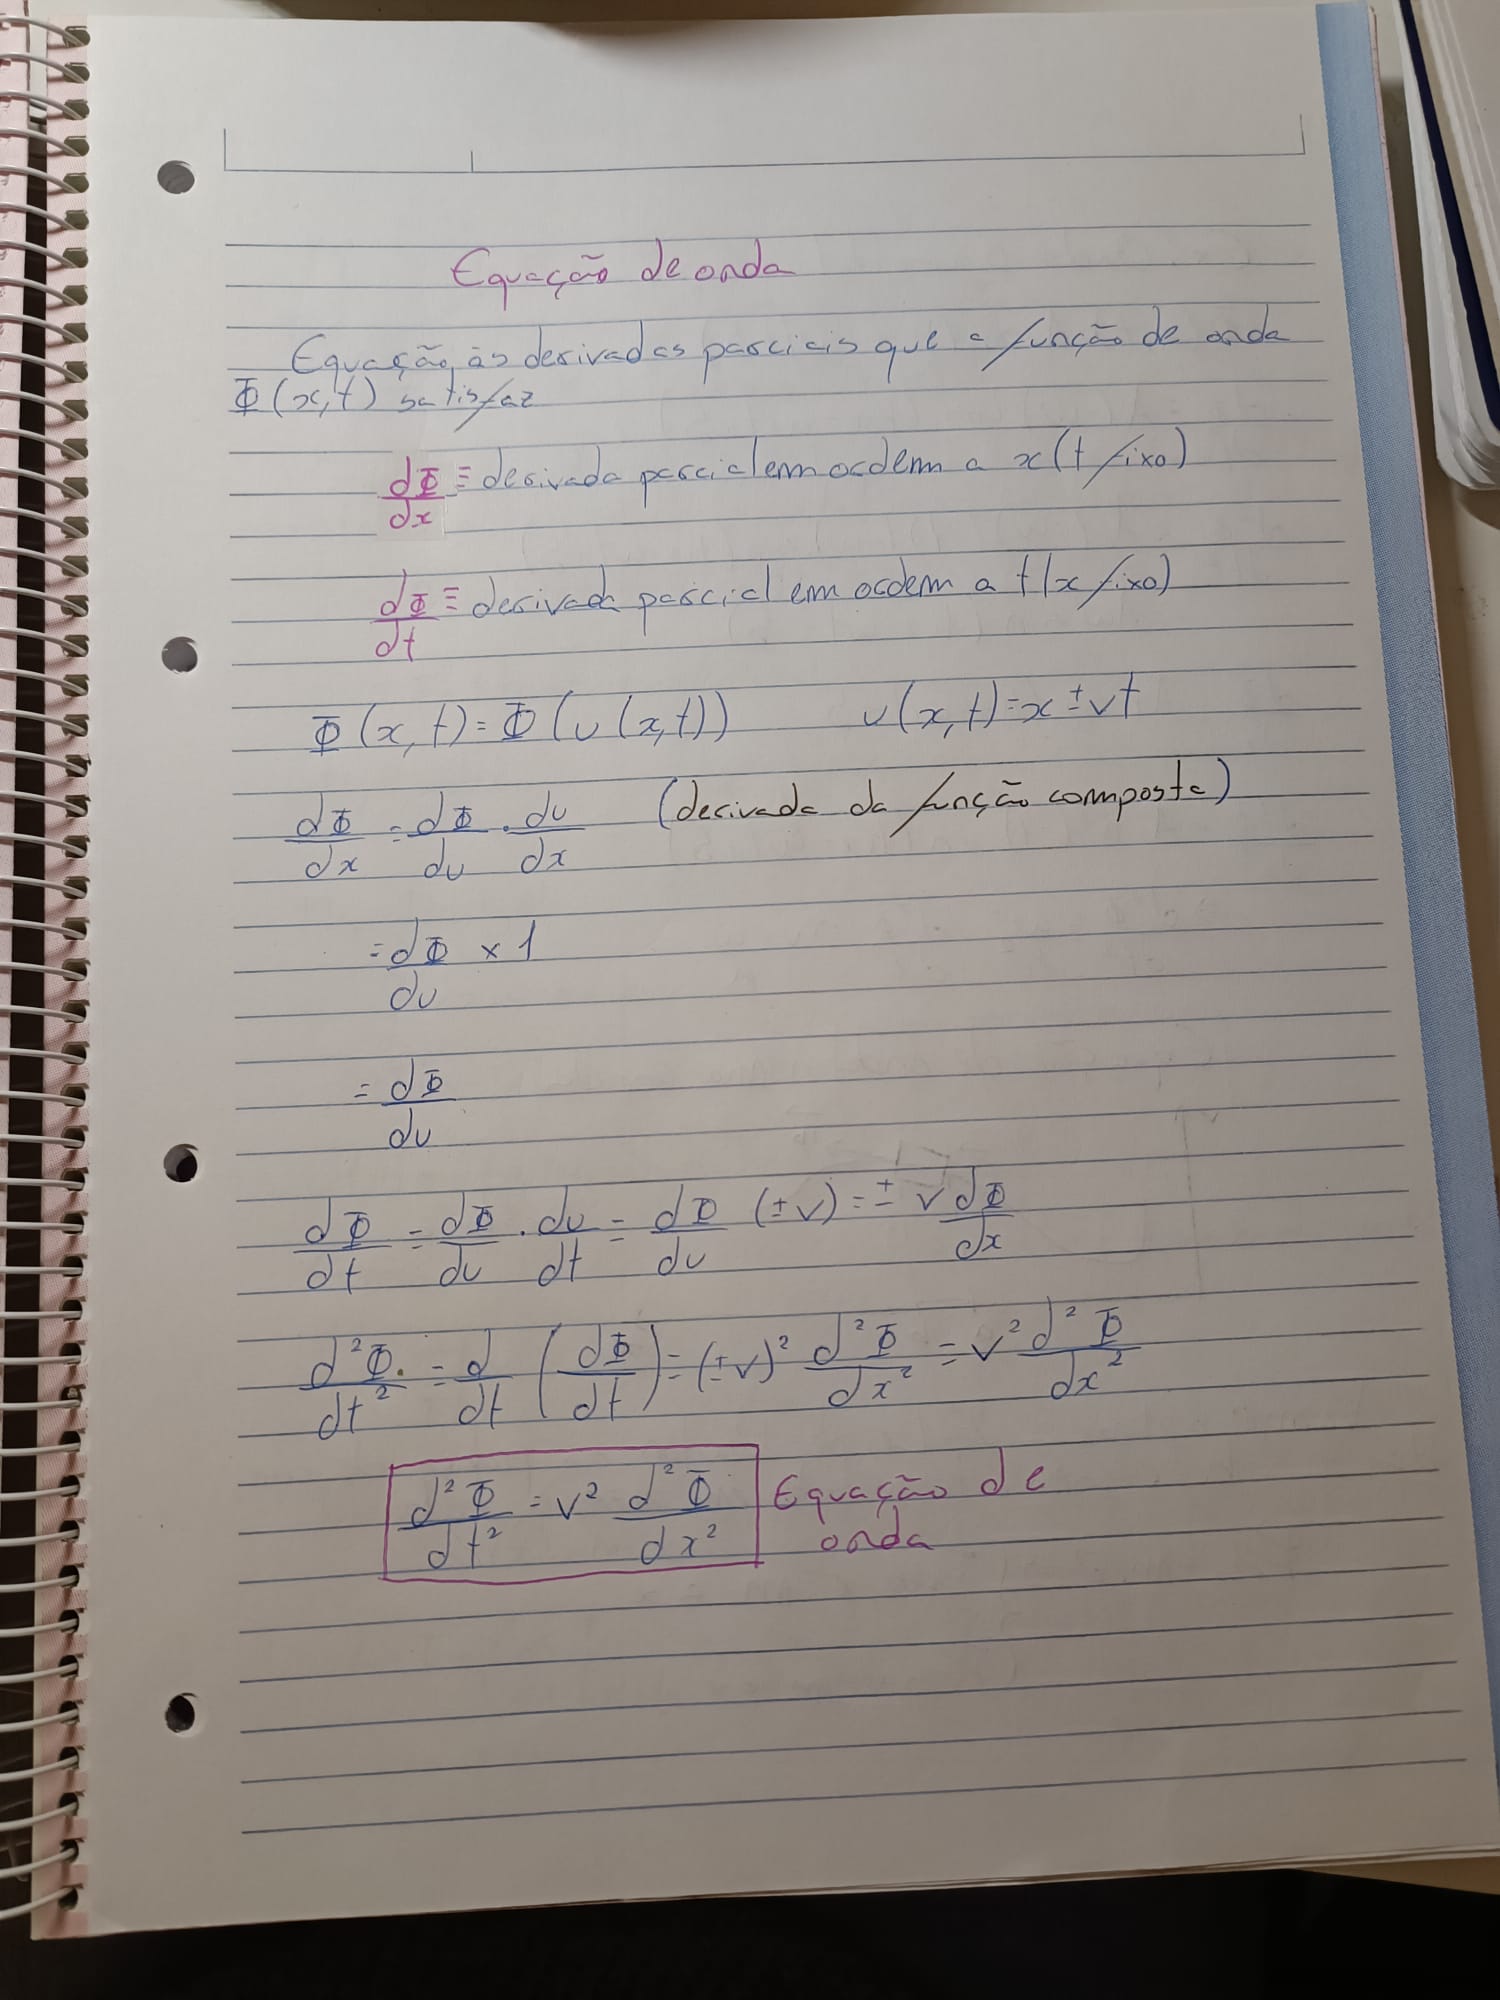 Equação de onda
Equação às derivadas parciais que a função de onda
Φ(x,t) satisfaz
dΦ/dx ≡ derivada parcial em ordem a x (t fixo)
dΦ/dt ≡ derivada parcial em ordem a t (x fixo)
Φ(x,t) = Φ(u(x,t)) u(x,t) = x ± vt
dΦ/dx = dΦ/du · du/dx (derivada da função composta)
= dΦ/du × 1
= dΦ/du
dΦ/dt = dΦ/du · du/dt = dΦ/du (±v) = ± v dΦ/dx
d²Φ/dt² = d/dt (dΦ/dt) = (±v)² d²Φ/dx² = v² d²Φ/dx²
d²Φ/dt² = v² d²Φ/dx² Equação de
onda